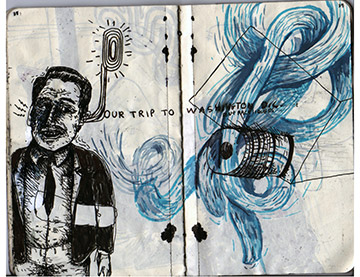 OUR TRIP TO WASHINGTON D.C.